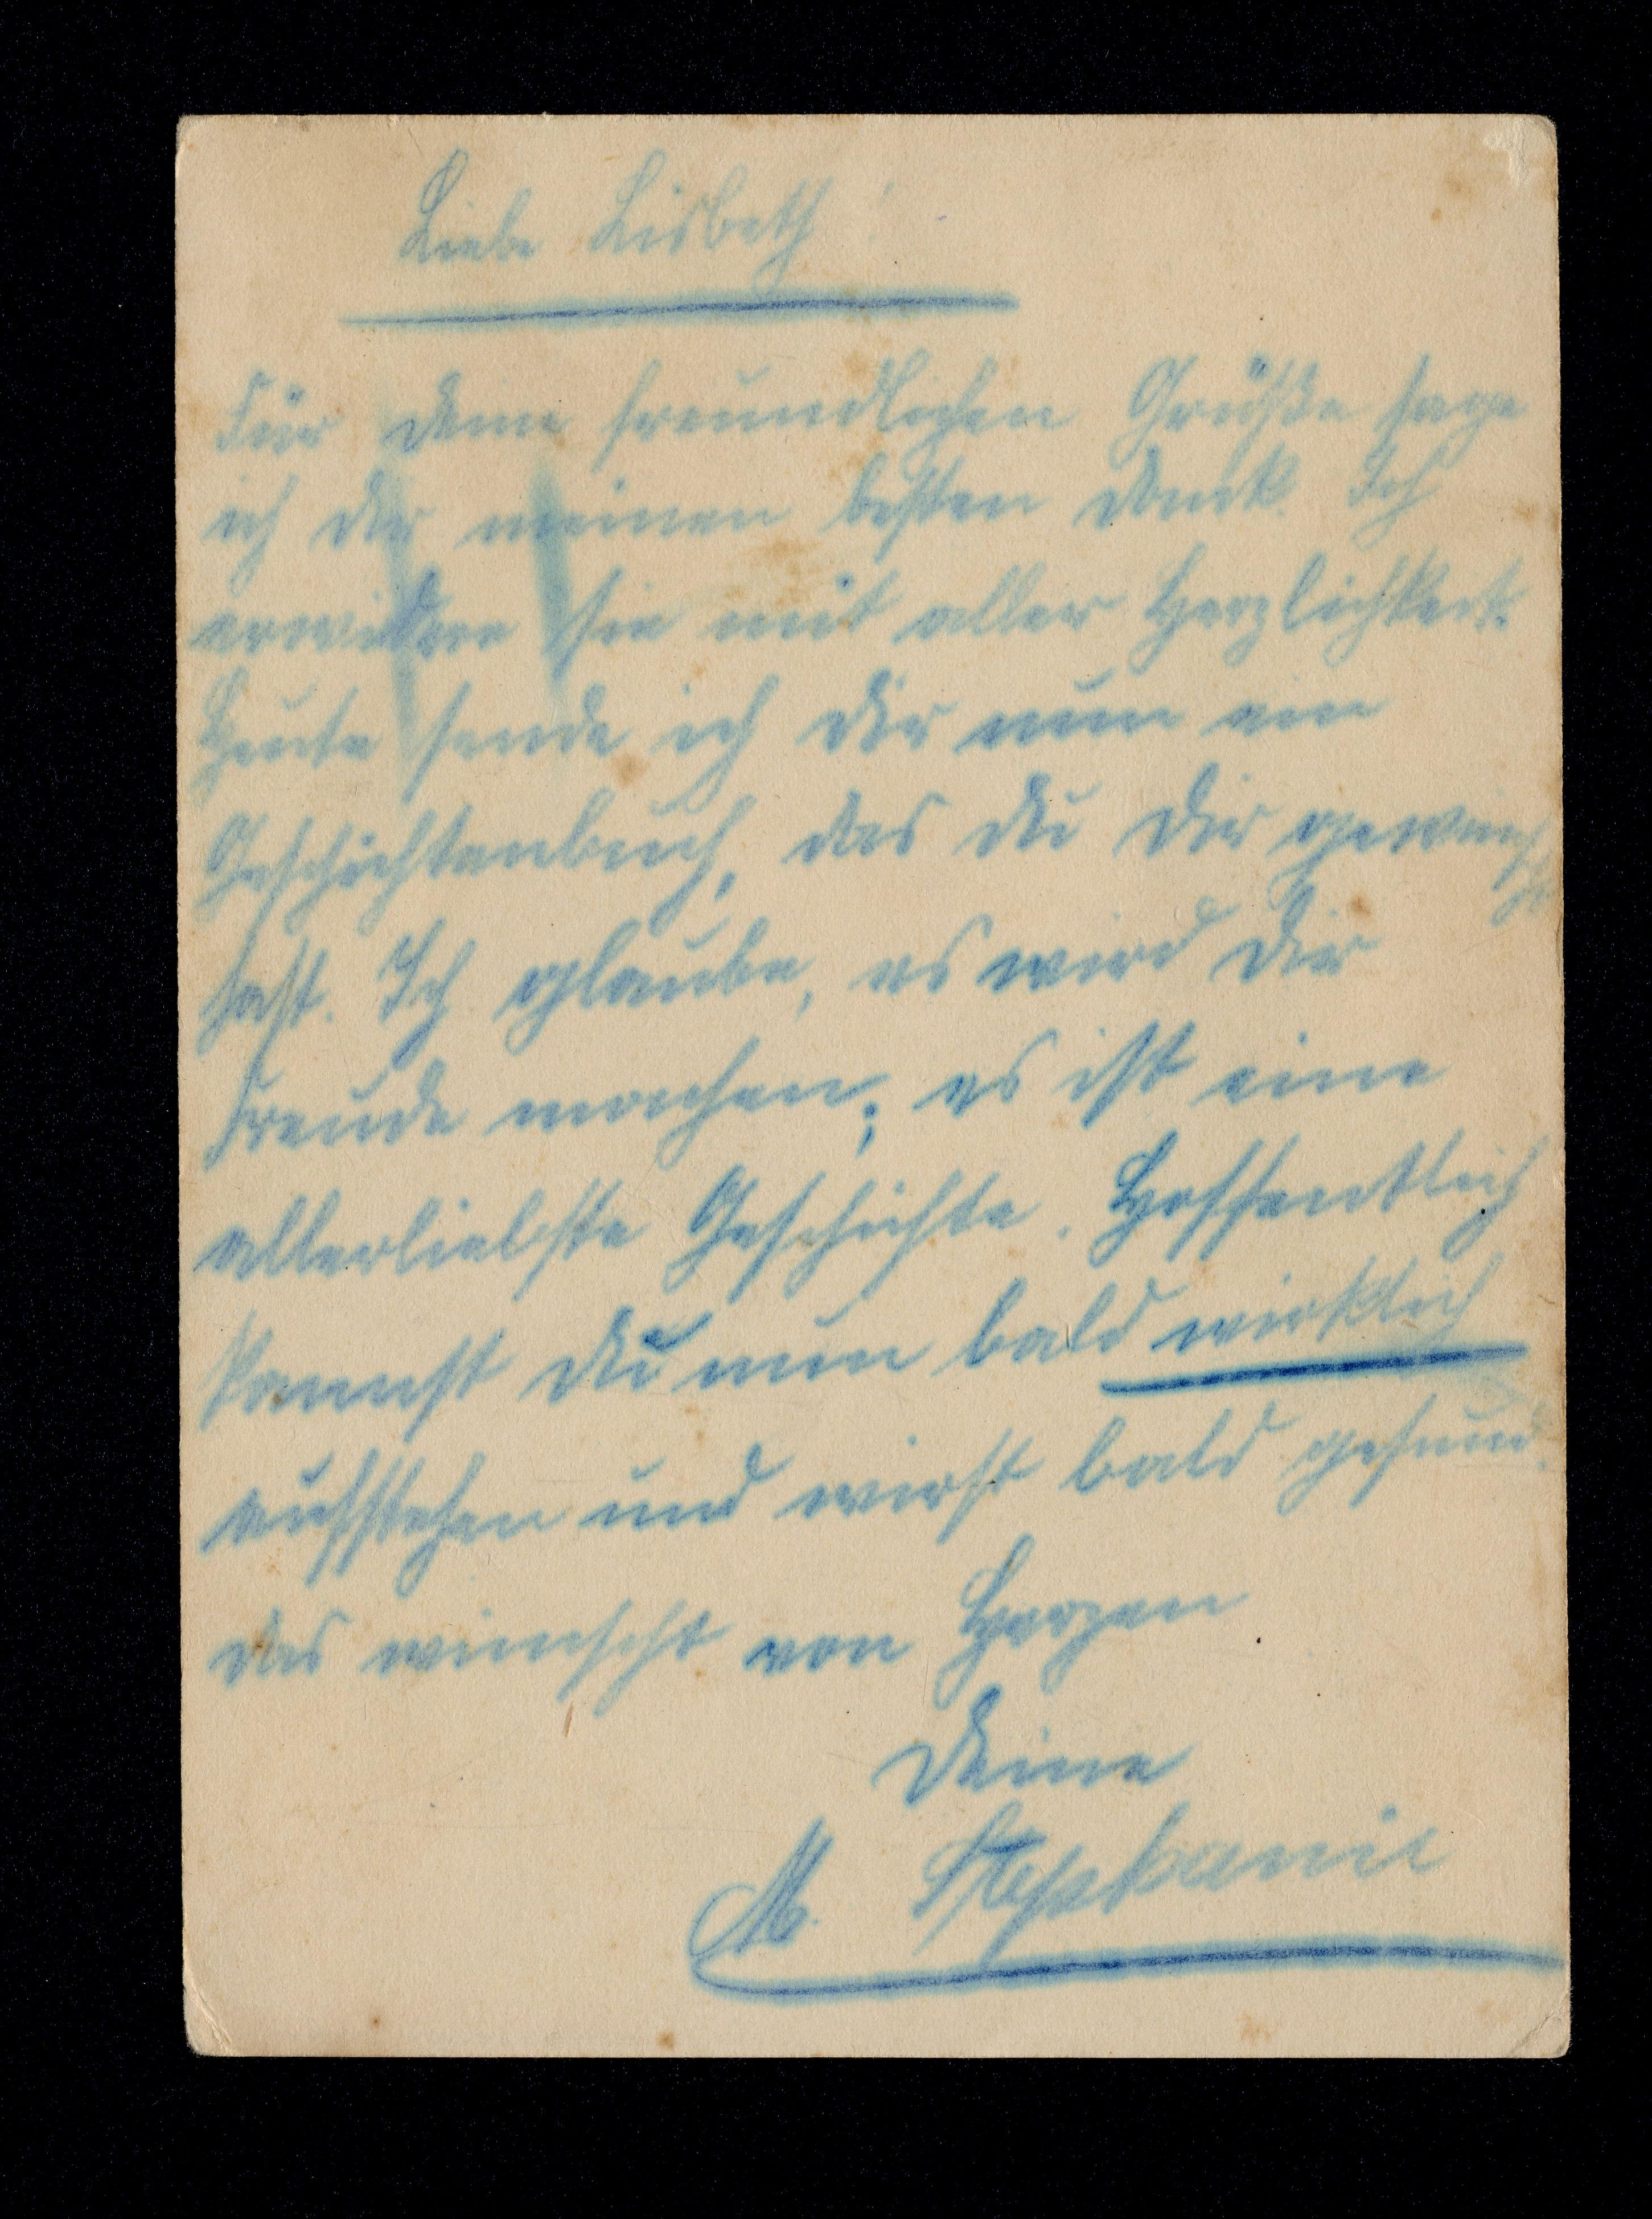 Liebe Lisbeth!
Für Deine freundlichen Grüße sage
ich Dir meinen besten Dank. Ich
erwidere sie mit aller Herzlichkeit.
Heute sende ich Dir nun ein
Geschichtenbuch, das Du Dir gewünscht
hast. Ich glaube, es wird Dir
Freude machen; es ist eine
allerliebste Geschichte. Hoffentlich
kannst Du nun bald wirklich
aufstehen und wirst bald gesund.
Das wünscht von Herzen
Deine
M. Stephanie